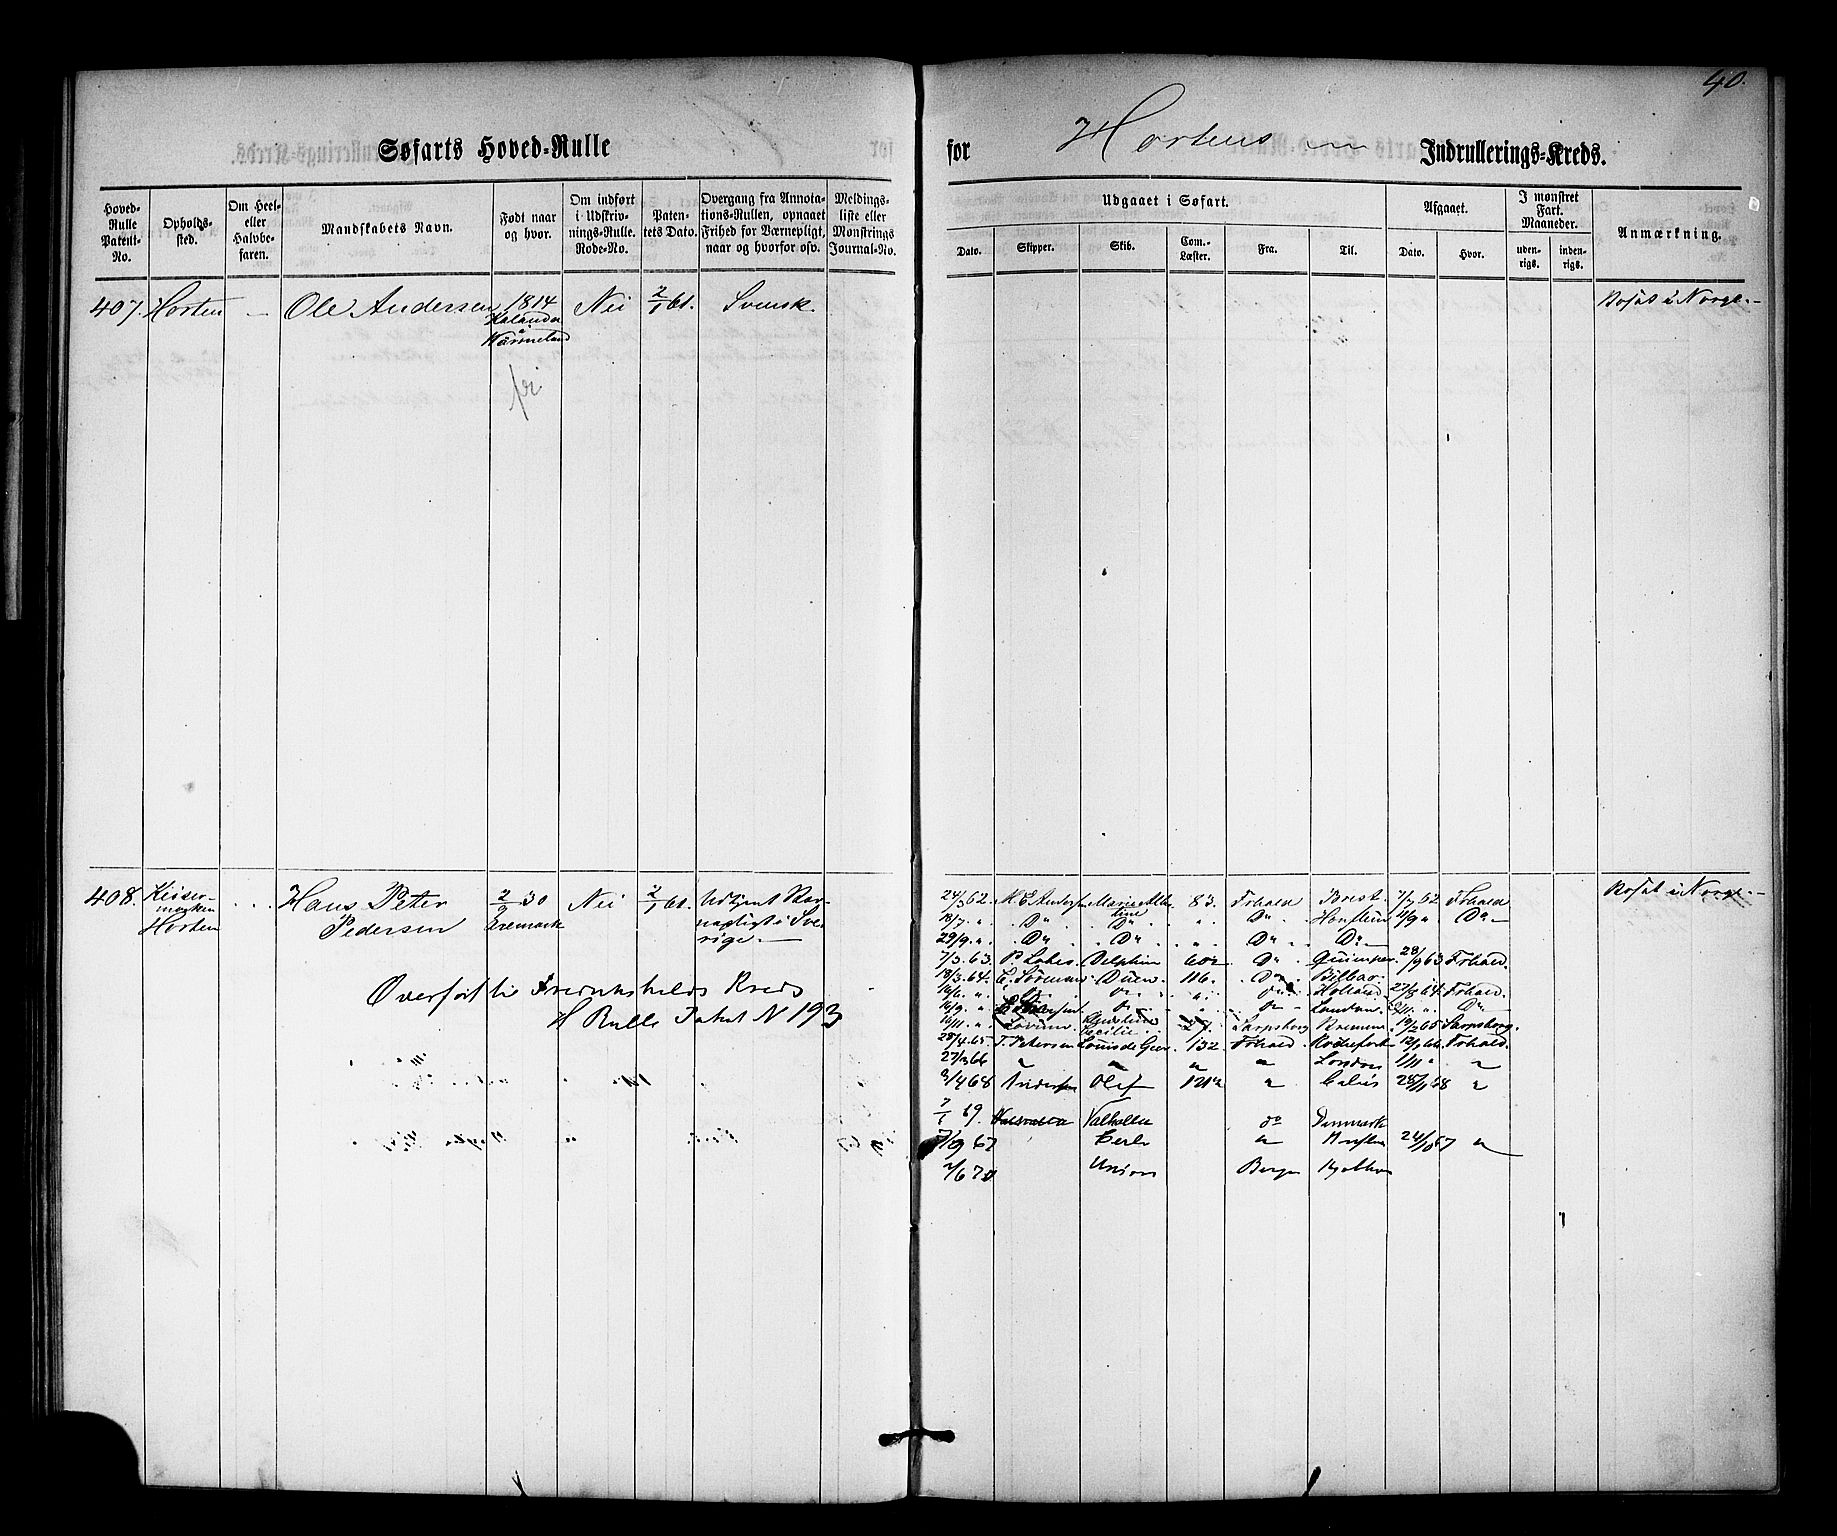 40.
Søfarts Hoved-Rulle
for Hortens Indrullerings-Kreds.
Hoved-Rulle Patent-No.
Opholdssted.
Om Heel- eller Halvbefaren.
Mandskabets Navn.
Født naar og hvor.
Om indført i Udskrivnings-Rulle. Rode-No.
Patentets Dato.
Overgang fra Annotations-Rullen, opnaaet Frihed for Værnepligt, naar og hvorfor osv.
Meldingsliste eller Mønstrings Journal-No.
Udgaaet i Søfart.
Dato. Skipper. Skib. Com.-Læster. Fra. Til.
Afgaaet.
Dato. Hvor.
I mønstret Fart. Maaneder.
udenrigs. indenrigs.
Anmærkning.
407. Horten — Ole Andersen 1814 Nei 2/1 61. Svensk. Bosat i Norge.—
Wärmeland
fri
408. Keisermarken Horten Hans Peter Pedersen 2/9 30 Nei 2/1 61. Bosat i Norge.—
Overført til Fredrikshalds Kreds
H Rulle Patent N 193
24/3 62. Marie 83. Frhald Brest. 7/7 62 Frhald
18/7 „ Do Do „ Do Honfleur 4/9 „ Do
29/9 „ Do Do „ Do Do
7/3 63. Delphin 60½ Do Quimper 28/9 63 Frhald.
18/3 64. C. Sørensen Duen. 116. Do Bilbao.
16/6 „ Do Do „ Do Holland 27/8 64. Frhald.
16/9 „ Do London. „ Do
16/11 „ Cecilie Sarpsborg Bremen 19/2 65 Sarpsborg.
28/4 65 T. Petersen Louis de Geer. 132. Frhald. Rochefort 12/9 66 Frhald.
27/3 66 „ „ „ „ London 1/11 „ „
9/4 68 Andersen Olaf 121½ „ Calais 28/11 68 „
7/1 69. Valhalla do Denmark
7/9 67 „ 24/10 67 „
2/6 70 Union Bergen